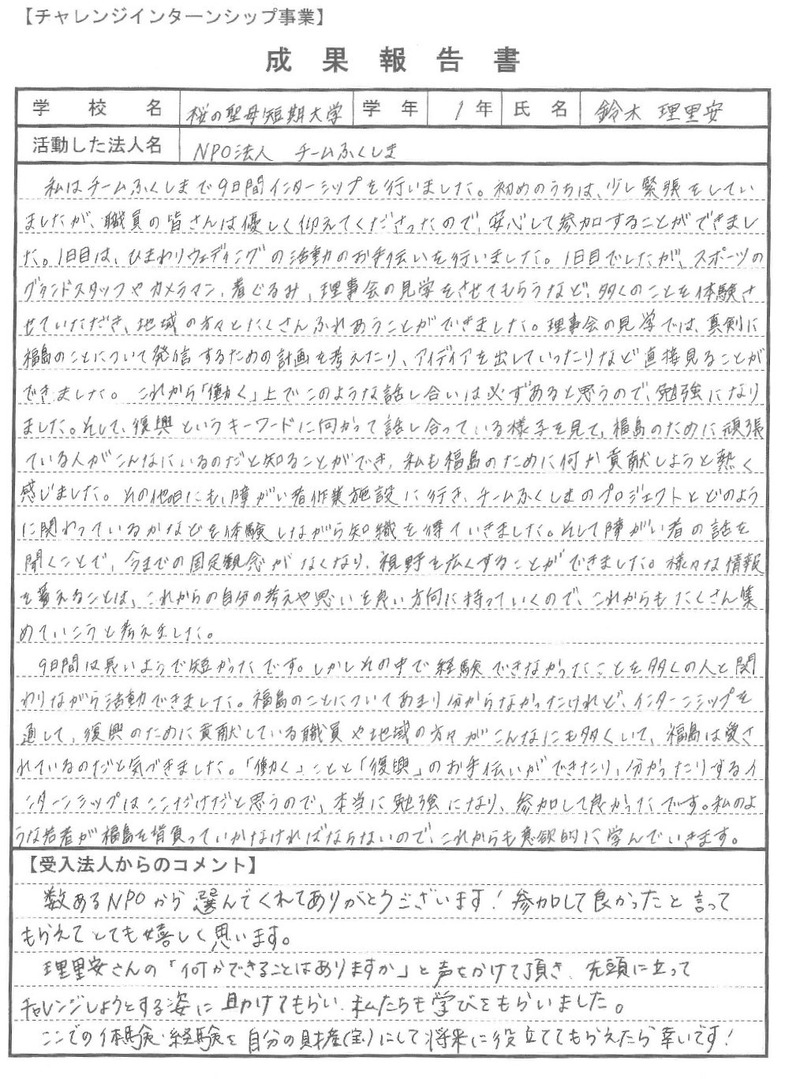 【チャレンジインターンシップ事業】
成果報告書
学校名 桜の聖母短期大学 学年 1年 氏名 鈴木 理里安
活動した法人名 NPO法人 チームふくしま
私はチームふくしまで9日間インターンシップを行いました。初めのうちは、少し緊張をしてい
ましたが、職員の皆さんは優しく教えてくださったので、安心して参加することができまし
た。1日目は、ひまわりウェディングの活動のお手伝いを行いました。1日目でしたが、スポーツの
グランドスタッフやカメラマン、着ぐるみ、理事会の見学をさせてもらうなど、多くのことを体験さ
せていただき、地域の方々とたくさんふれあうことができました。理事会の見学では、真剣に
福島のことについて発信するための計画を考えたり、アイディアを出していったりなど直接見ることが
できました。これから「働く」上でこのような話し合いは必ずあると思うので、勉強になり
ました。そして、復興というキーワードに向かって話し合っている様子を見て、福島のために頑張
ている人がこんなにいるのだと知ることができ、私も福島のために何か貢献しようと熱く
感じました。その他日にも、障がい者作業施設に行き、チームふくしまのプロジェクトとどのよう
に関わっているかなどを体験しながら知識を得ていきました。そして障がい者の話を
聞くことで、今までの固定観念がなくなり、視野を広くすることができました。様々な情報
を蓄えることは、これからの自分の考えや思いを良い方向に持っていくので、これからもたくさん集
めていこうと考えました。
9日間は長いようで短かったです。しかしその中で経験できなかったことを多くの人と関
わりながら活動できました。福島のことについてあまり分からなかったけれど、インターンシップを
通して、復興のために貢献している職員や地域の方々がこんなにも多くいて、福島は愛さ
れているのだと気づきました。「働く」ことと「復興」のお手伝いができたり、分かったりするイ
ンターンシップはここだけだと思うので、本当に勉強になり、参加して良かったです。私のよ
うな若者が福島を背負っていかなければならないので、これからも意欲的に学んでいきます。
【受入法人からのコメント】
数あるNPOから選んでくれてありがとうございます！参加して良かったと言って
もらえてとても嬉しく思います。
理里安さんの「何かできることはありますか」と声をかけて頂き、先頭に立って
チャレンジしようとする姿に助けてもらい、私たちも学びをもらいました。
ここでの体験・経験を自分の財産(宝)にして将来に役立ててもらえたら幸いです！